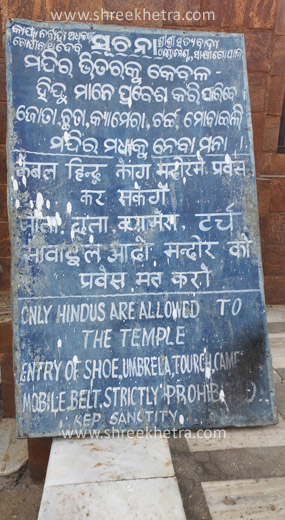 www.shreekhetra.com
ସୂଚନା
ମନ୍ଦିର ଭିତରକୁ କେବଳ
ହିନ୍ଦୁ ମାନେ ପ୍ରବେଶ କରି ପାରିବେ
ଜୋତା, ଛତା, କ୍ୟାମେରା, ଟର୍ଚ୍ଚ, ମୋବାଇଲି
ମନ୍ଦିର ମଧ୍ୟକୁ ନେବା ମନା
केबल हिन्दू लोग मन्दीरमे प्रवेस
कर सकेगों
जोता, छता, क्यामेरा, टर्च
मोवाइल आदी मन्दीर को
प्रवेस मत करो
ONLY HINDUS ARE ALLOWED TO
THE TEMPLE
ENTRY OF SHOE, UMBRELA, TOURCH, CAME
MOBILE, BELT, STRICTLY PROHIB D
KEP SANCTITY
www.shreekhetra.com